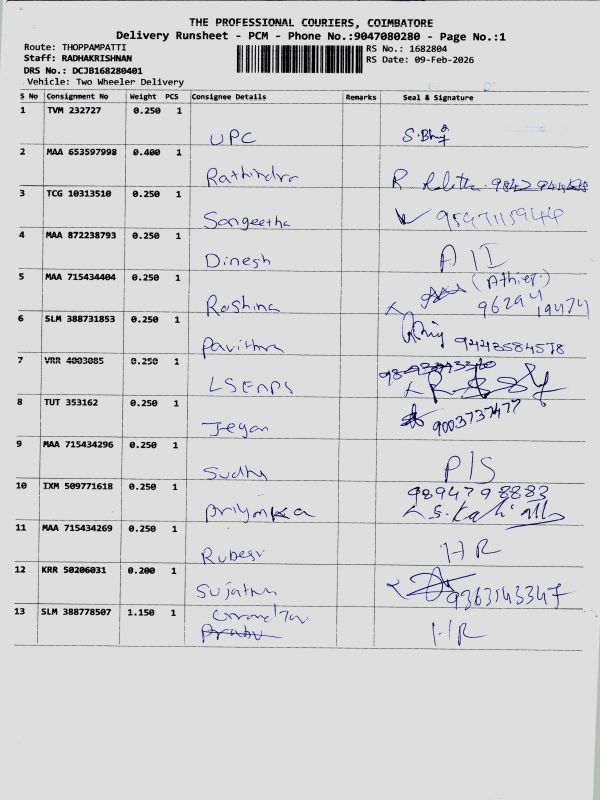 THE PROFESSIONAL COURIERS, COIMBATORE
Delivery Runsheet - PCM - Phone No.:9047080280 - Page No.:1
Route: THOPPAMPATTI RS No.: 1682804
Staff: RADHAKRISHNAN RS Date: 09-Feb-2026
DRS No.: DCJB168280401
Vehicle: Two Wheeler Delivery
S No Consignment No Weight PCS Consignee Details Remarks Seal & Signature
1 TVM 232727 0.250 1
UPC
2 MAA 653597998 0.400 1
Rathindra R.
3 TCG 10313510 0.250 1
Sangeetha
4 MAA 872238793 0.250 1
Dinesh
5 MAA 715434404 0.250 1
Roshina 96294 19474
6 SLM 388731853 0.250 1
Pavithra 9443584578
7 VRR 4003085 0.250 1
8 TUT 353162 0.250 1
Jeyan 9003737477
9 MAA 715434296 0.250 1
Sudhy P/S
10 IXM 509771618 0.250 1 9894798883
Priyanka
11 MAA 715434269 0.250 1
HR
12 KRR 50206031 0.200 1
9363543347
13 SLM 388778507 1.150 1
HR